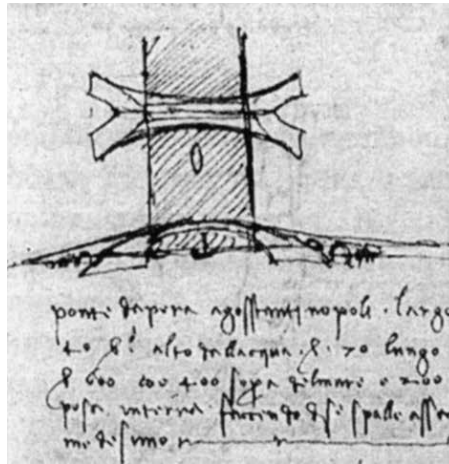 ponte dapera agosstantinopoli . largo
40 br alto dallacqua . br . 70 lungo
br 600 coe 400 sopra delmare e 200
posa interra faccendo dise spalle asse
medesimo